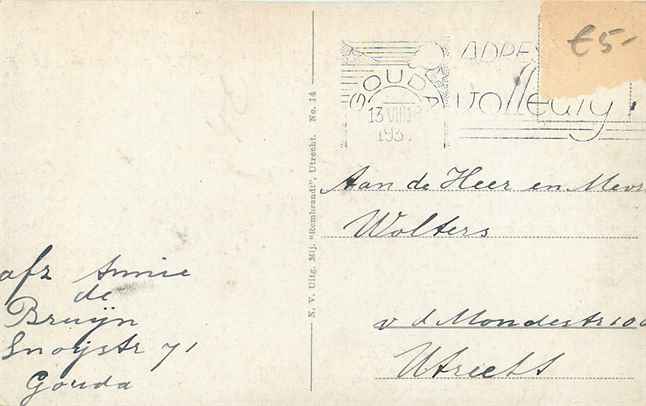 €5-
ADRES
GOUDA
volledig!
13 VIII
193
Aan de Heer en Mevr
Wolters
v d Mondestr 100
Utrecht
N. V. Uitg. Mij. "Rembrandt", Utrecht. No. 14
afz Annie
de
Bruijn
Snoijstr 71
Gouda